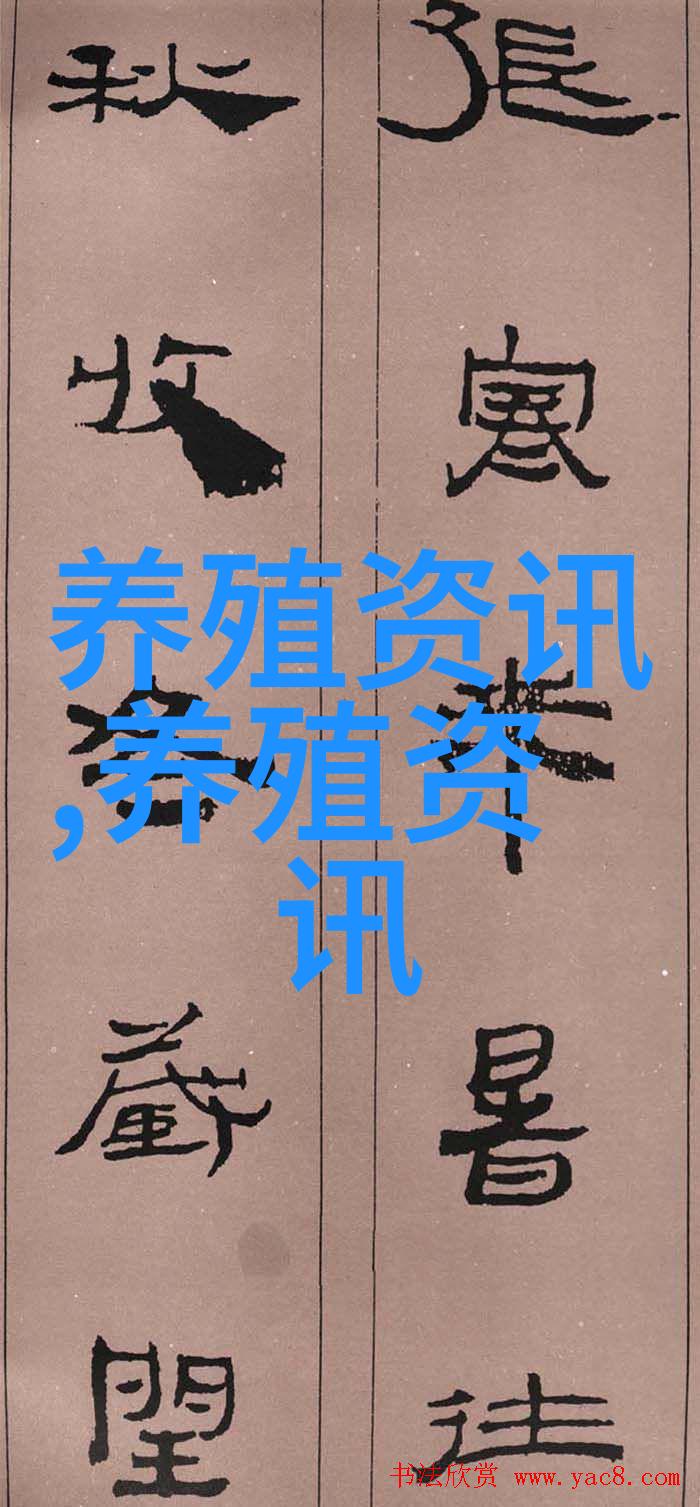 張寒来暑往
秋收冬藏閏
养殖资讯
,养殖资
讯
书法欣赏 www.yac8.com